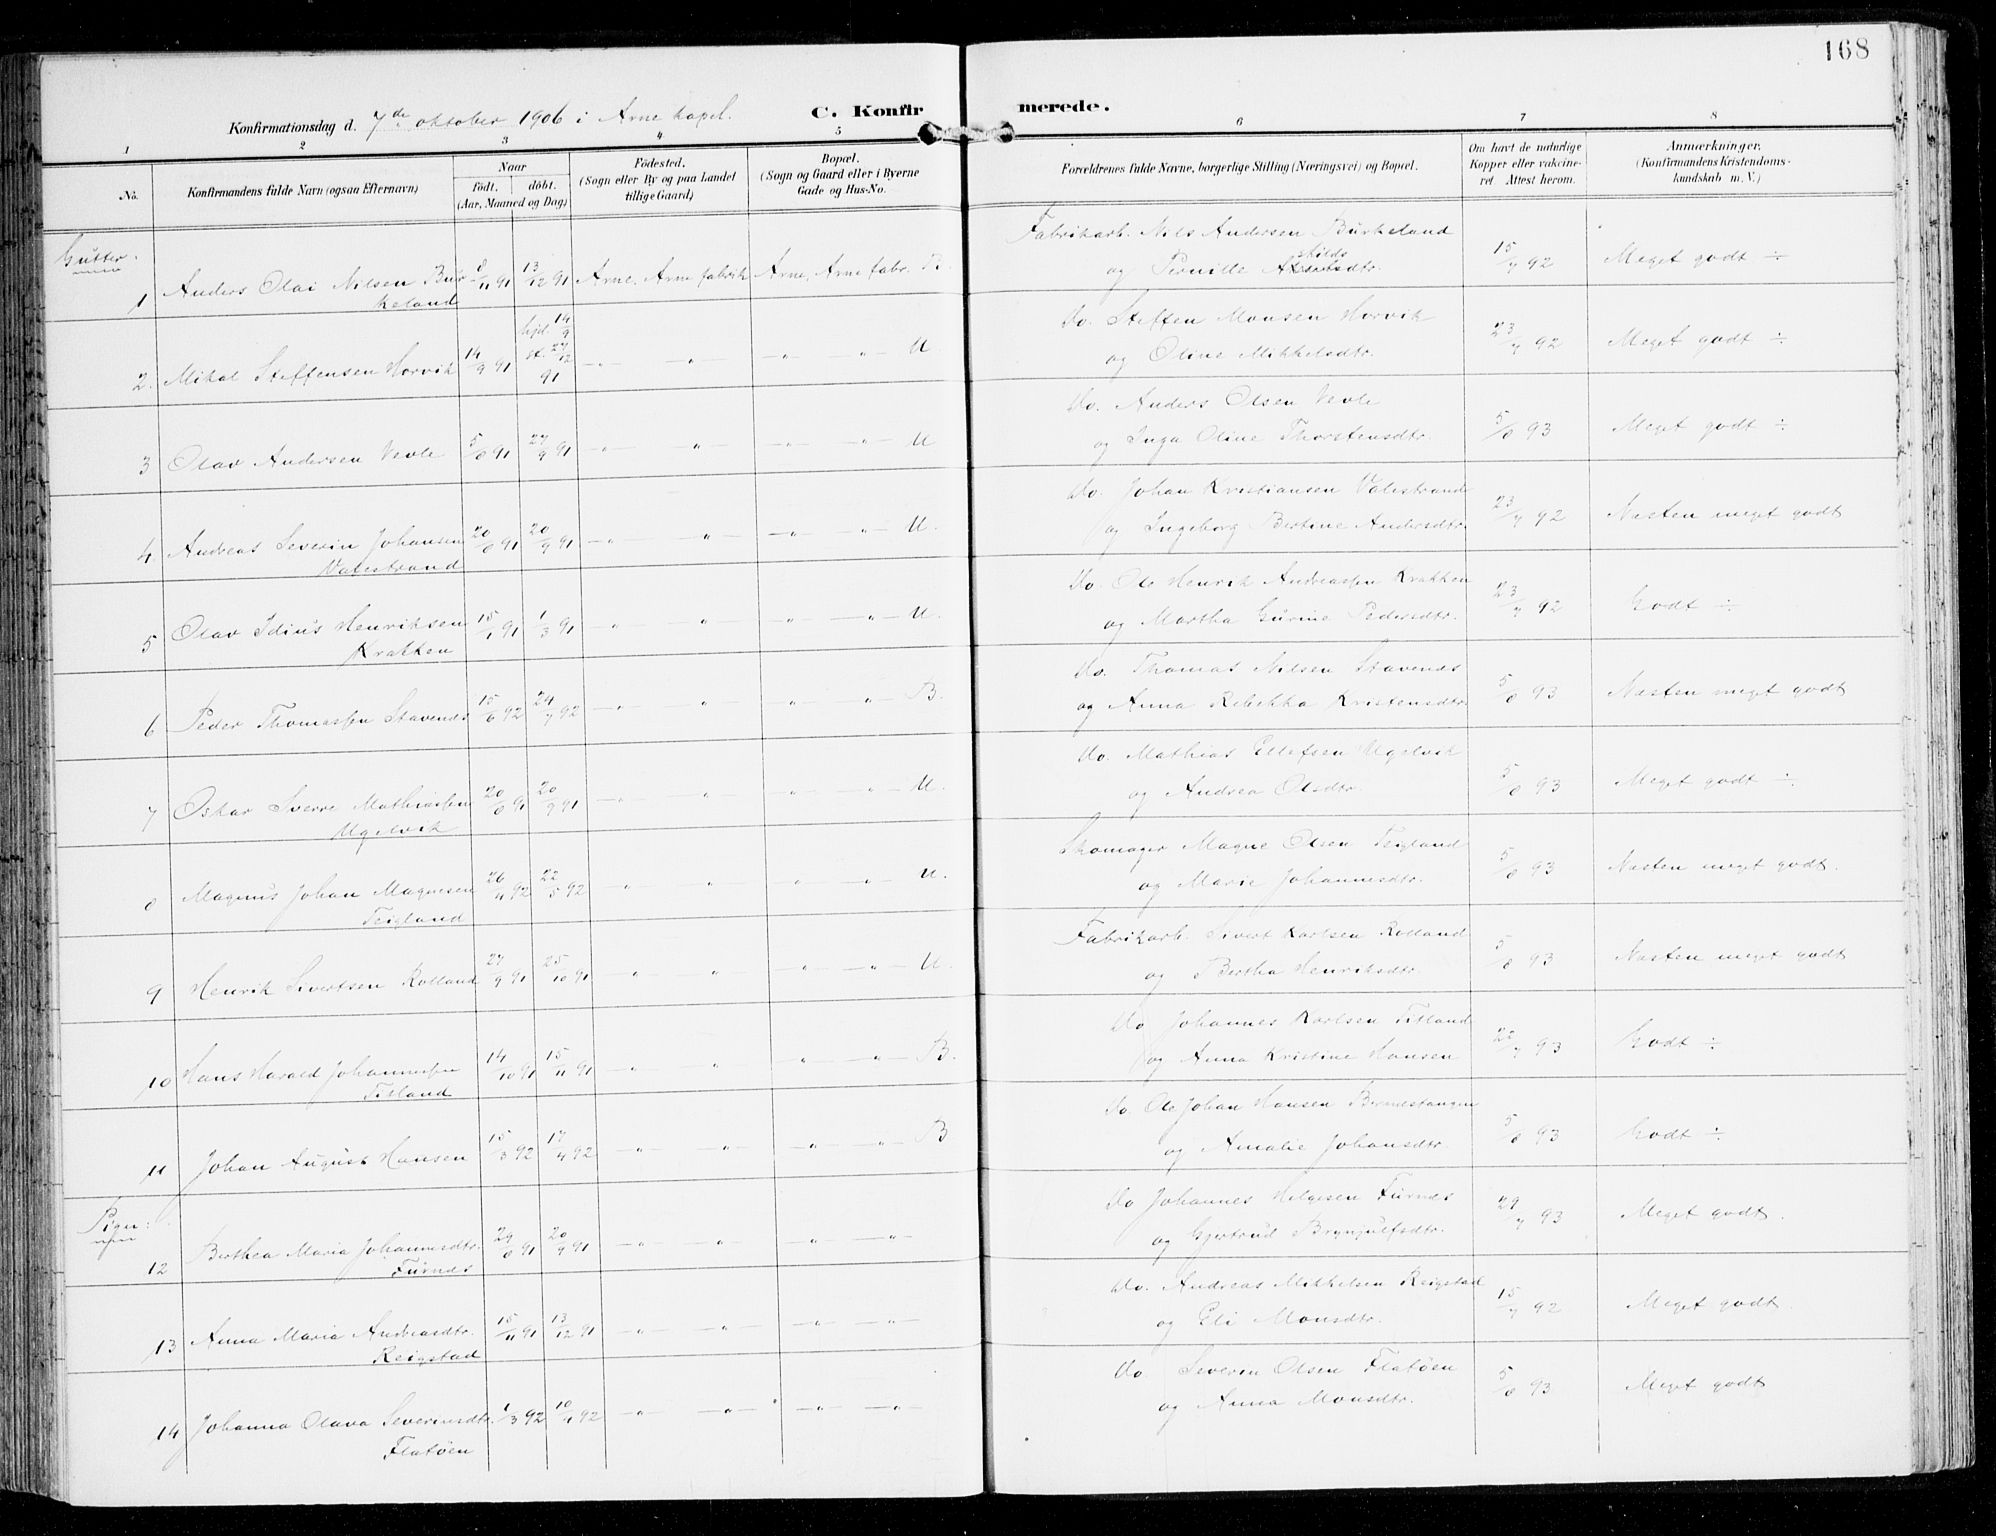 168
C. Konfirmerede.
Konfirmationsdag d. 7de oktober 1906 i Arne kapel.
1 2 3 4 5 6 7 8
No.
Konfirmandens fulde Navn (ogsaa Efternavn)
Naar
födt. döbt.
(Aar, Maaned og Dag)
Födested.
(Sogn eller By og paa Landet
tillige Gaard)
Bopæl.
(Sogn og Gaard eller i Byerne
Gade og Hus-No.
Forældrenes fulde Navne, borgerlige Stilling (Næringsvei) og Bopæl.
Om havt de naturlige
Kopper eller vakcine-
ret. Attest herom.
Anmærkninger.
(Konfirmandens Kristendoms-
kundskab m. V.)
Gutter.
1 Anders Olai Nilsen Bur- 8/11 91 13/12 91 Arne, Arne fabrik Arne, Arne fabr. B.
keland
Fabrikarb. Nils Andersen Burkeland
og Pernille Askildsdtr. 15/7 92 Meget godt ÷
2. Mikal Steffensen Horvik 14/9 91 hjd. 14/9 st. 27/12 91 — „ — „ — — „ — „ — U
Do. Steffen Monsen Horvik
og Oline Mikkelsdtr. 23/7 92 Meget godt ÷
3 Olav Andersen Vevle 5/8 91 27/9 91 — „ — „ — — „ — „ — U
Do. Anders Olsen Vevle
og Inga Oline Thorstensdtr. 5/8 93 Meget godt ÷
4 Andreas Severin Johansen 20/8 91 20/9 91 — „ — „ — — „ — „ — U.
Valestrand
Do. Johan Kristiansen Valestrand
og Ingeborg Bertine Andersdtr. 23/7 92 Næsten meget godt
5 Olav Idius Henriksen 15/1 91 1/3 91 — „ — „ — — „ — „ — U.
Krakken
Do. Ole Henrik Andreassen Krakken
og Martha Gurine Pedersdtr. 23/7 92 Godt ÷
6 Peder Thomassen Stavenes 15/6 92 24/7 92 — „ — „ — — „ — „ — B.
Do. Thomas Nilsen Stavenes
og Anna Rebekka Kristensdtr. 5/8 93 Næsten meget godt
7 Oskar Sverre Mathiassen 20/8 91 20/9 91 — „ — „ — — „ — „ — U.
Ugelvik
Do. Mathias Ellefsen Ugelvik
og Andrea Olsdtr. 5/8 93 Meget godt ÷
8 Magnus Johan Magnesen 26/4 92 22/5 92 — „ — „ — — „ — „ — U.
Teigland
Skomager Magne Olsen Teigland
og Marie Johannesdtr. 5/8 93 Næsten meget godt.
9 Henrik Sivertsen Rolland 27/9 91 25/10 91 — „ — „ — — „ — „ — U.
Fabrikarb. Sivert Karlsen Rolland
og Bertha Henriksdtr. 5/8 93 Næsten meget godt
10 Hans Harald Johannessen 14/10 91 15/11 91 — „ — „ — — „ — „ — B.
Titland
Do Johannes Karlsen Titland
og Anna Kristine Hansen 22/7 93 Godt ÷
11 Johan August Hansen 15/3 92 17/4 92 — „ — „ — — „ — „ — B
Do. Ole Johan Hansen
og Amalie Johansdtr. 5/8 93 Godt ÷
Piger:
12 Berthea Maria Johannesdtr. 29/8 91 20/9 91 — „ — „ — — „ — „ —
Furnes
Do Johannes Helgesen Furnes
og Gjertrud Brynjulfsdtr. 29/7 93 Meget godt.
13 Anna Maria Andreasdtr. 15/11 91 13/12 91 — „ — „ — — „ — „ —
Reigstad
Do. Andreas Mikkelsen Reigstad
og Eli Monsdtr. 15/7 92 Meget godt.
14 Johanna Olava Severinsdtr. 1/3 92 10/4 92 — „ — „ — — „ — „ —
Flatöen
Do Severin Olsen Flatöen
og Anna Monsdtr. 5/8 93 Meget godt